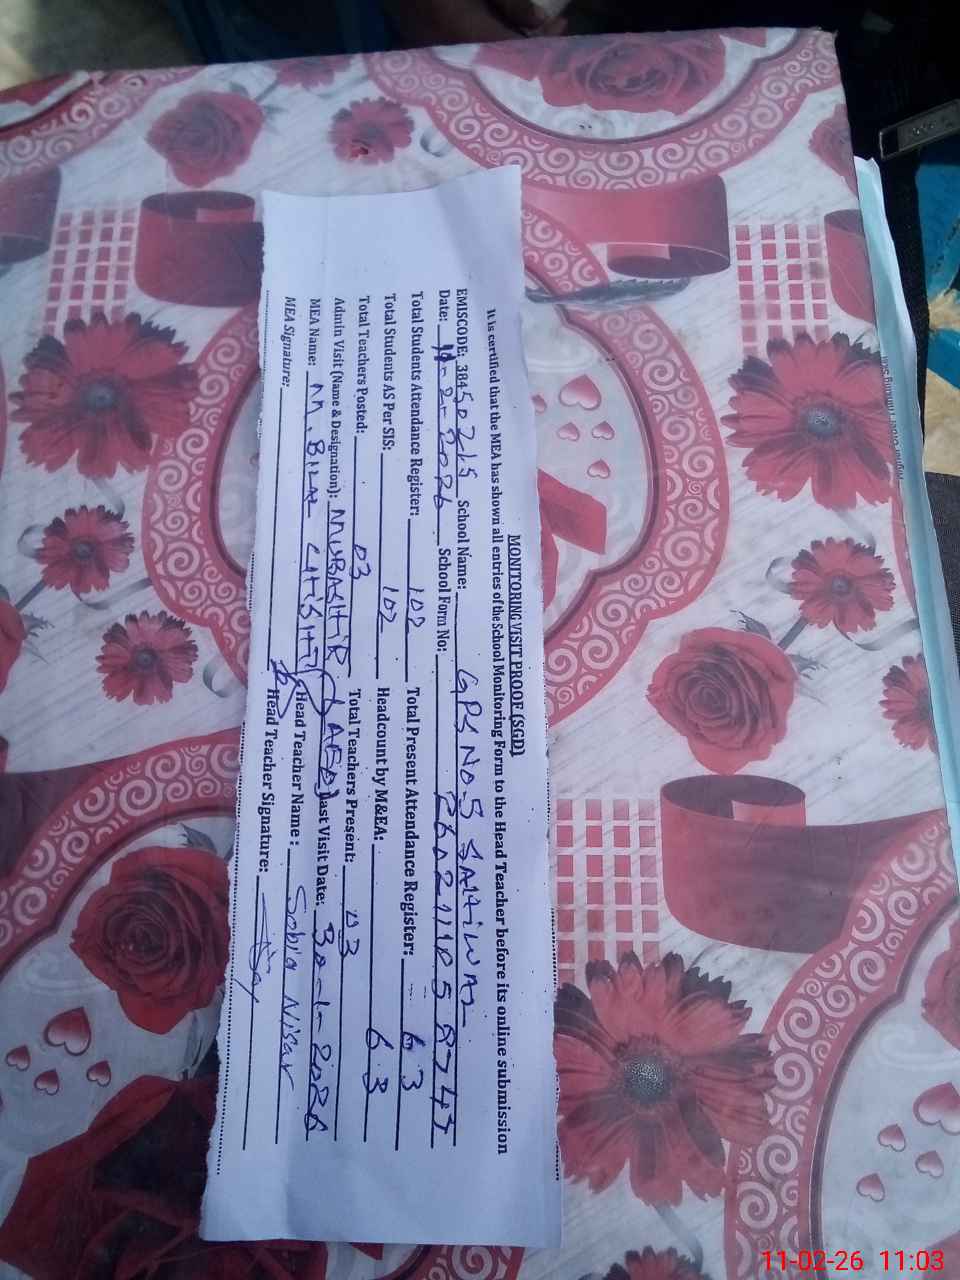 MONITORING VISIT PROOF (SGD)
It is certified that the MEA has shown all entries of the School Monitoring Form to the Head Teacher before its online submission
EMISCODE: 38450215 School Name: GPS NO-5 SAHIWAL
Date: 11-2-2026 School Form No:
Total Students Attendance Register: 102 Total Present Attendance Register: 63
Total Students AS Per SIS: 102 Headcount by M&EA: 63
Total Teachers Posted: 03 Total Teachers Present: 03
Admin Visit (Name & Designation): MUBASHIR (AEO) Last Visit Date: 30-1-2026
MEA Name: M. BILAL Head Teacher Name: Sobia Nisar
MEA Signature: Head Teacher Signature:
11-02-26 11:03